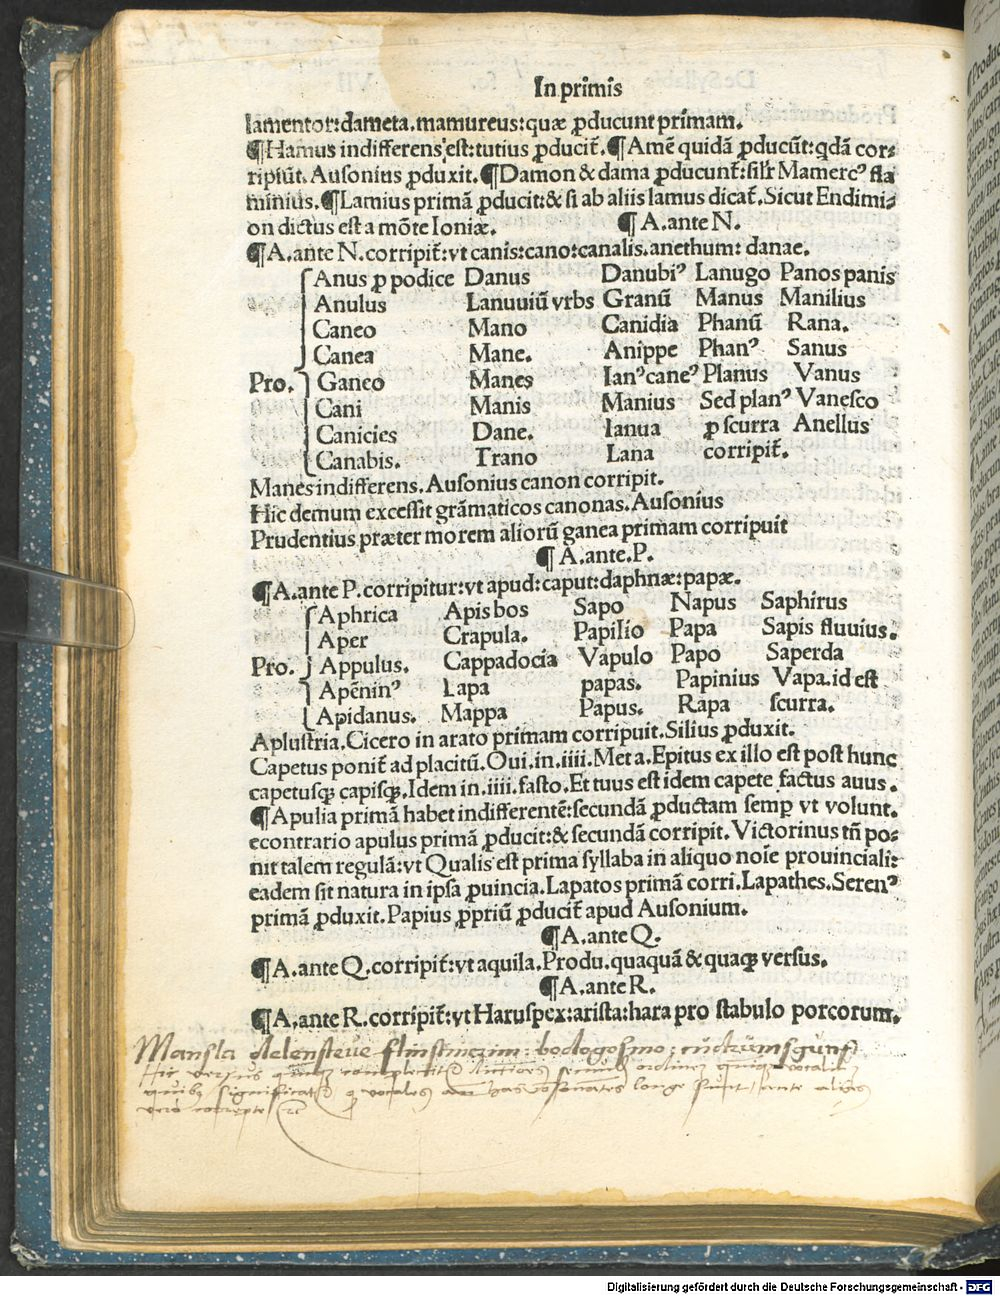 In primis
lamentor:dameta.mamureus:quæ ꝓducunt primam.
¶Hamus indifferens est:tutius ꝓducit̃.¶Amẽ quidã ꝓducũt:qdã cor⸗
ripiũt. Ausonius ꝓduxit.¶Damon & dama ꝓducunt̃:silr̃ Mamercꝰ fla
minius.¶Lamius primã ꝓducit:& si ab aliis lamus dicat̃.Sicut Endimi⸗
on dictus est a mõte Ioniæ. ¶ A.ante N.
¶A.ante N.corripit̃:vt canis:cano:canalis.anethum: danae.
Anus ꝓ podice Danus Danubiꝰ Lanugo Panos panis
Anulus Lanuuiũ vrbs Granũ Manus Manilius
Caneo Mano Canidia Phanũ Rana.
Canea Mane. Anippe Phanꝰ Sanus
Pro. Ganeo Manes Ianꝰcaneꝰ Planus Vanus
Cani Manis Manius Sed planꝰ Vanesco
Canicies Dane. Ianua ꝓ scurra Anellus
Canabis. Trano Lana corripit̃.
Manes indifferens. Ausonius canon corripit.
Hic demum excessit grãmaticos canonas. Ausonius
Prudentius præter morem aliorũ ganea primam corripuit
¶ A.ante.P.
¶A.ante P.corripitur:vt apud:caput:daphnæ:papæ.
Aphrica Apis bos Sapo Napus Saphirus
Aper Crapula. Papilio Papa Sapis fluuius.
Pro. Appulus. Cappadocia Vapulo Papo Saperda
Apẽninꝰ Lapa papas. Papinius Vapa.id est
Apidanus. Mappa Papus. Rapa scurra.
Aplustria.Cicero in arato primam corripuit.Silius ꝓduxit.
Capetus ponit̃ ad placitũ.Oui.in.iiii.Meta.Epitus ex illo est post hunc
capetusqꝫ capisqꝫ.Idem in.iiii.fasto.Et tuus est idem capete factus auus.
¶Apulia primã habet indifferentẽ:secundã ꝓductam semꝑ vt volunt.
econtrario apulus primã ꝓducit:& secundã corripit.Victorinus tñ po⸗
nit talem regulã:vt Qualis est prima syllaba in aliquo noĩe prouinciali:
eadem sit natura in ipsa ꝓuincia.Lapatos primã corri.Lapathes.Serenꝰ
primã ꝓduxit.Papius ꝓpriũ ꝓducit̃ apud Ausonium.
¶A.ante Q.
¶A.ante Q.corripit̃:vt aquila.Produ.quaquã & quaqꝫ versus.
¶A.ante R.
¶A.ante R.corripit̃:vt Haruspex:arista:hara pro stabulo porcorum.
Hic versus
significat vocales longe
vero correpte
Digitalisierung gefördert durch die Deutsche Forschungsgemeinschaft - DFG